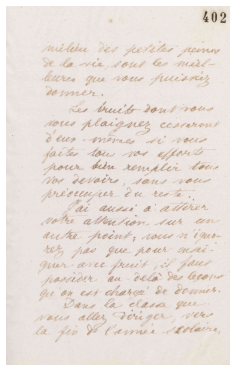 402
milieu des petites peines
de la vie, sont les meil-
leures que vous puissiez
donner.
Les bruits dont vous
vous plaignez cesseront
d'eux-mêmes si vous
faites tous vos efforts
pour bien remplir tous
vos devoirs, sans vous
préoccuper du reste.
J'ai aussi à attirer
votre attention sur un
autre point, vous n'igno-
rez pas que pour ensei-
gner avec fruit, il faut
posséder au delà des leçons
qu'on est chargé de donner.
Dans la classe que
vous allez diriger, vers
la fin de l'année scolaire,